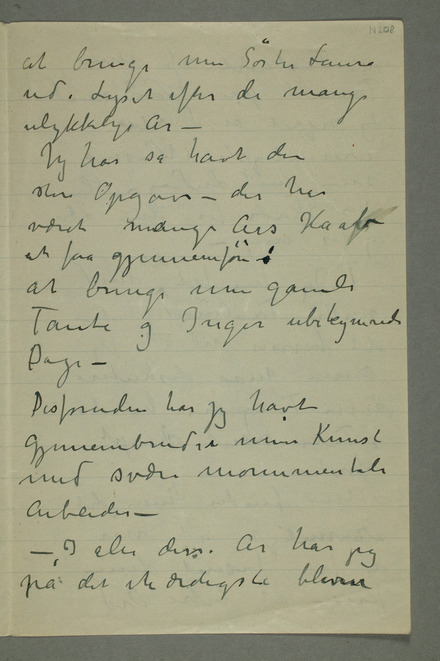 N 208
at bringe min Söster Laura
ud i Lyset efter de mange
ulykkelige Aar –
Jeg har så havt den
store Opgave – der har
været mange Aars Haab
at faa gjennemfört
at bringe min gamle
Tante og Inger ubekymrede
Dage –
Desforuden har jeg havt
gjennembrudt i min Kunst
med svære monumentale
Arbeider –
– I alle disse Aar har jeg
på det ihærdigste bleven